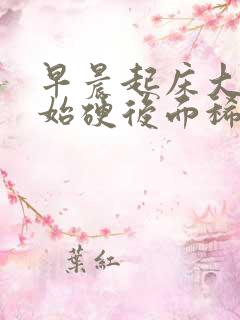 早晨起床大
始硬後而稀
葉紅